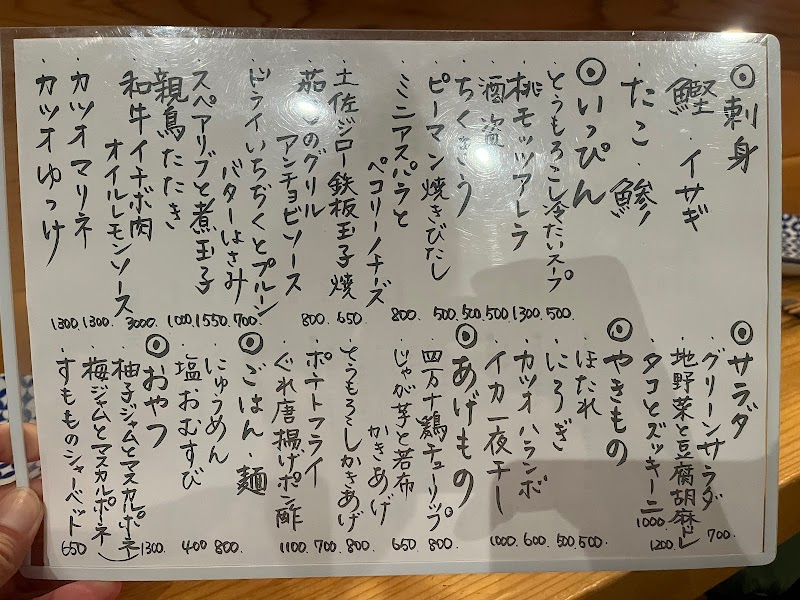 ◎刺身
鰹・イサギ
たこ・鯵
◎いっぴん
・とうもろこし冷たいスープ 500.
・桃モッツアレラ 1300.
・酒盗 500.
・ちくきゅう 500.
・ピーマン焼きびたし 500.
・ミニアスパラと
ペコリーノチーズ 800.
・土佐ジロー鉄板玉子焼 650.
・茄子のグリル
アンチョビソース 800.
・ドライいちぢくとプルーン
バターはさみ 700.
・スペアリブと煮玉子 1550.
・親鳥たたき 1000.
・和牛イチボ肉
オイルレモンソース 3000.
・カツオマリネ 1300.
・カツオゆっけ 1300.
◎サラダ
・グリーンサラダ 700.
・地野菜と豆腐胡麻ドレ 1200.
・タコとズッキーニ 1000.
◎やきもの
・ほたれ 500.
・にろぎ 500.
・カツオハランボ 600.
・イカ一夜干し 1000.
◎あげもの
・四万十鶏チューリップ 800.
・じゃが芋と若布
かきあげ 650.
・とうもろこしかきあげ 800.
・ポテトフライ 700.
・ぐれ唐揚げポン酢 1100.
◎ごはん・麺
・にゅうめん 800.
・塩おむすび 400.
◎おやつ
・柚子ジャムとマスカルポーネ 1300.
・梅ジャムとマスカルポーネ
・すもものシャーベット 650.